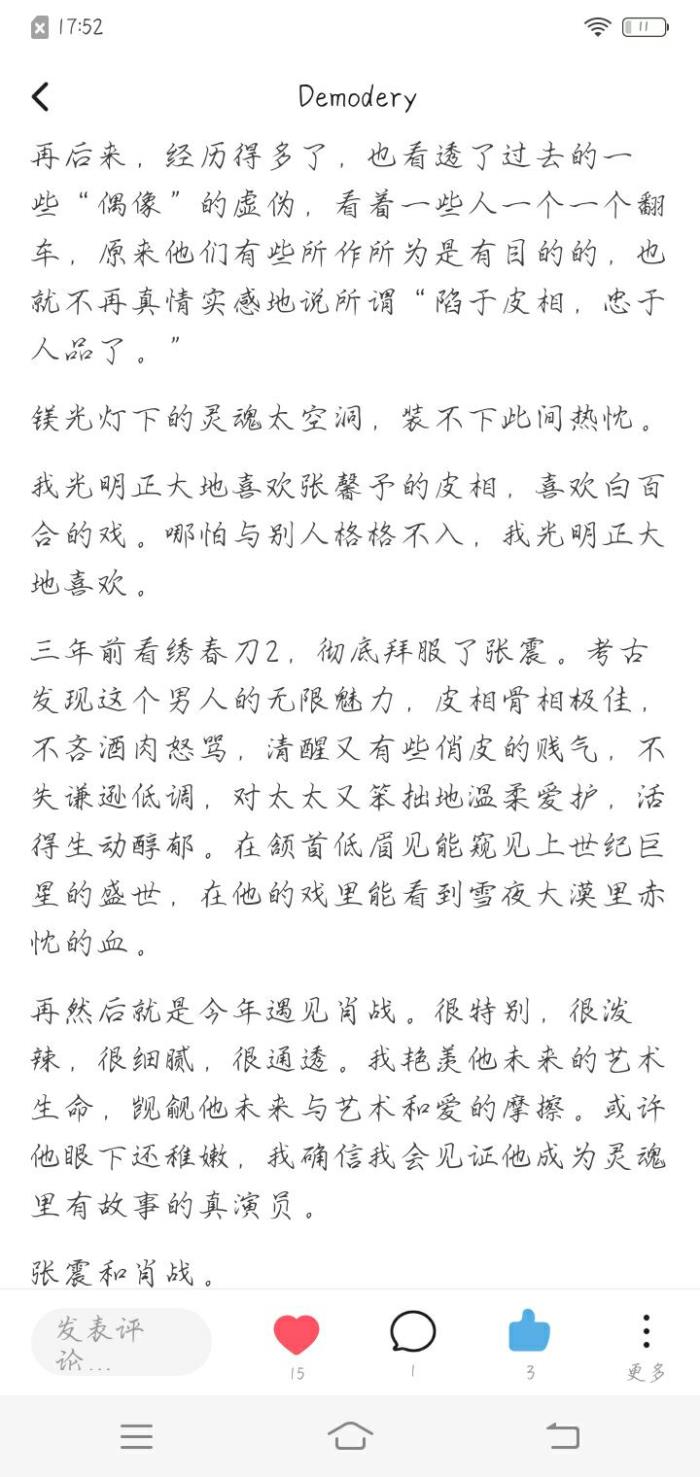 17:52
11
Demodery
再后来，经历得多了，也看透了过去的一
些“偶像”的虚伪，看着一些人一个一个翻
车，原来他们有些所作所为是有目的的，也
就不再真情实感地说所谓“陷于皮相，忠于
人品了。”
镁光灯下的灵魂太空洞，装不下此间热忱。
我光明正大地喜欢张馨予的皮相，喜欢白百
合的戏。哪怕与别人格格不入，我光明正大
地喜欢。
三年前看绣春刀2，彻底拜服了张震。考古
发现这个男人的无限魅力，皮相骨相极佳，
不吝酒肉怒骂，清醒又有些俏皮的贱气，不
失谦逊低调，对太太又笨拙地温柔爱护，活
得生动醇郁。在颔首低眉见能窥见上世纪巨
星的盛世，在他的戏里能看到雪夜大漠里赤
忱的血。
再然后就是今年遇见肖战。很特别，很泼
辣，很细腻，很通透。我艳羡他未来的艺术
生命，觊觎他未来与艺术和爱的摩擦。或许
他眼下还稚嫩，我确信我会见证他成为灵魂
里有故事的真演员。
张震和肖战。
发表评
论...
15
1
3
更多